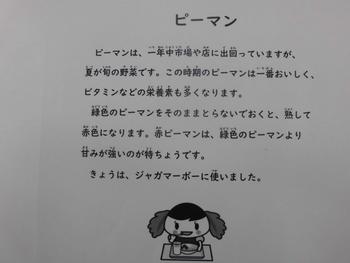 ピーマン
ピーマンは、一年中市場や店に出回っていますが、
夏が旬の野菜です。この時期のピーマンは一番おいしく、
ビタミンなどの栄養素も多くなります。
緑色のピーマンをそのままとらないでおくと、熟して
赤色になります。赤ピーマンは、緑色のピーマンより
甘みが強いのが特ちょうです。
きょうは、ジャガマーボーに使いました。